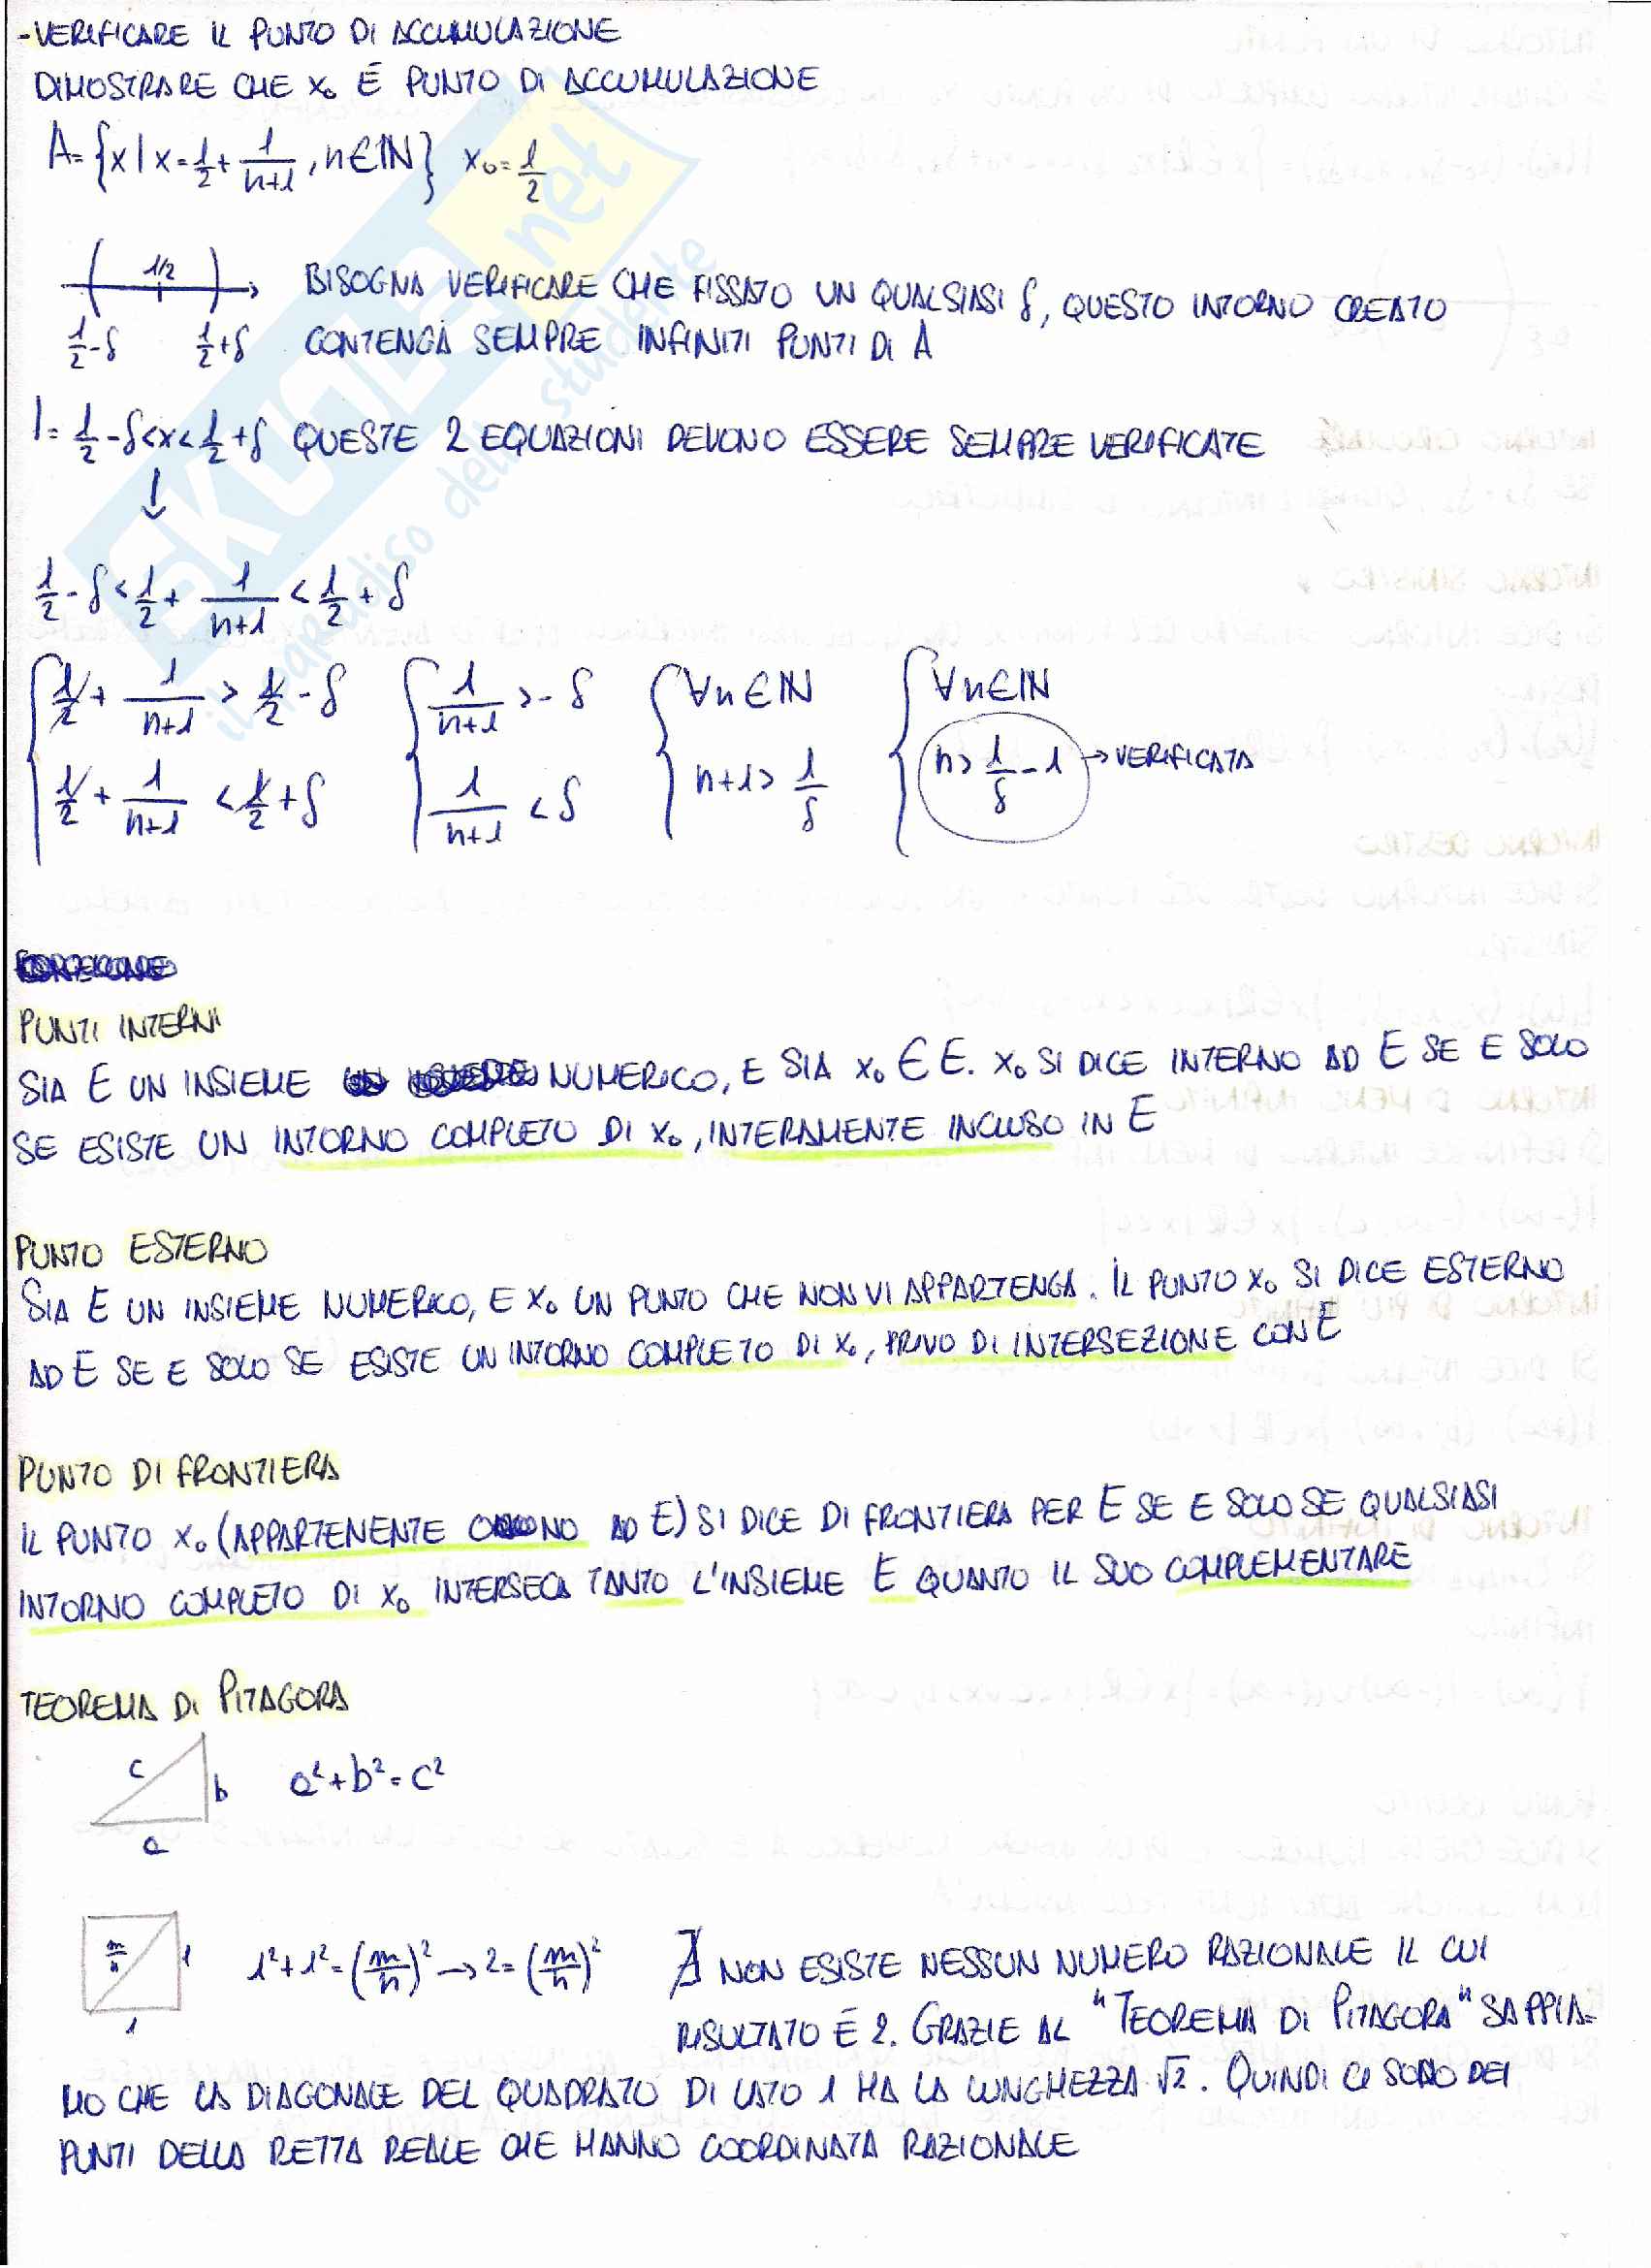 -VERIFICARE IL PUNTO DI ACCUMULAZIONE
DIMOSTRARE CHE x₀ È PUNTO DI ACCUMULAZIONE
A={x|x=1/2+1/(n+1), n∈ℕ} x₀=1/2
1/2
1/2-δ 1/2+δ
BISOGNA VERIFICARE CHE FISSATO UN QUALSIASI δ, QUESTO INTORNO CREATO
CONTENGA SEMPRE INFINITI PUNTI DI A
I=1/2-δ<x<1/2+δ QUESTE 2 EQUAZIONI DEVONO ESSERE SEMPRE VERIFICATE
↓
1/2-δ<1/2+1/(n+1)<1/2+δ
{1/2+1/(n+1)>1/2-δ {1/(n+1)>-δ {∀n∈ℕ {∀n∈ℕ
1/2+1/(n+1)<1/2+δ 1/(n+1)<δ n+1>1/δ n>1/δ-1 →VERIFICATA
PUNTI INTERNI
SIA E UN INSIEME NUMERICO, E SIA x₀∈E. x₀ SI DICE INTERNO AD E SE E SOLO
SE ESISTE UN INTORNO COMPLETO DI x₀, INTERAMENTE INCLUSO IN E
PUNTO ESTERNO
SIA E UN INSIEME NUMERICO, E x₀ UN PUNTO CHE NON VI APPARTENGA. IL PUNTO x₀ SI DICE ESTERNO
AD E SE E SOLO SE ESISTE UN INTORNO COMPLETO DI x₀, PRIVO DI INTERSEZIONE CON E
PUNTO DI FRONTIERA
IL PUNTO x₀ (APPARTENENTE O NO AD E) SI DICE DI FRONTIERA PER E SE E SOLO SE QUALSIASI
INTORNO COMPLETO DI x₀ INTERSECA TANTO L'INSIEME E QUANTO IL SUO COMPLEMENTARE
TEOREMA DI PITAGORA
c b a
a²+b²=c²
m/n 1 1
1²+1²=(m/n)²→2=(m/n)²
∄ NON ESISTE NESSUN NUMERO RAZIONALE IL CUI
RISULTATO È 2. GRAZIE AL "TEOREMA DI PITAGORA" SAPPIA=
MO CHE LA DIAGONALE DEL QUADRATO DI LATO 1 HA LA LUNGHEZZA √2. QUINDI CI SONO DEI
PUNTI DELLA RETTA REALE CHE HANNO COORDINATA RAZIONALE
SKUOLA.net
il paradiso dello studente